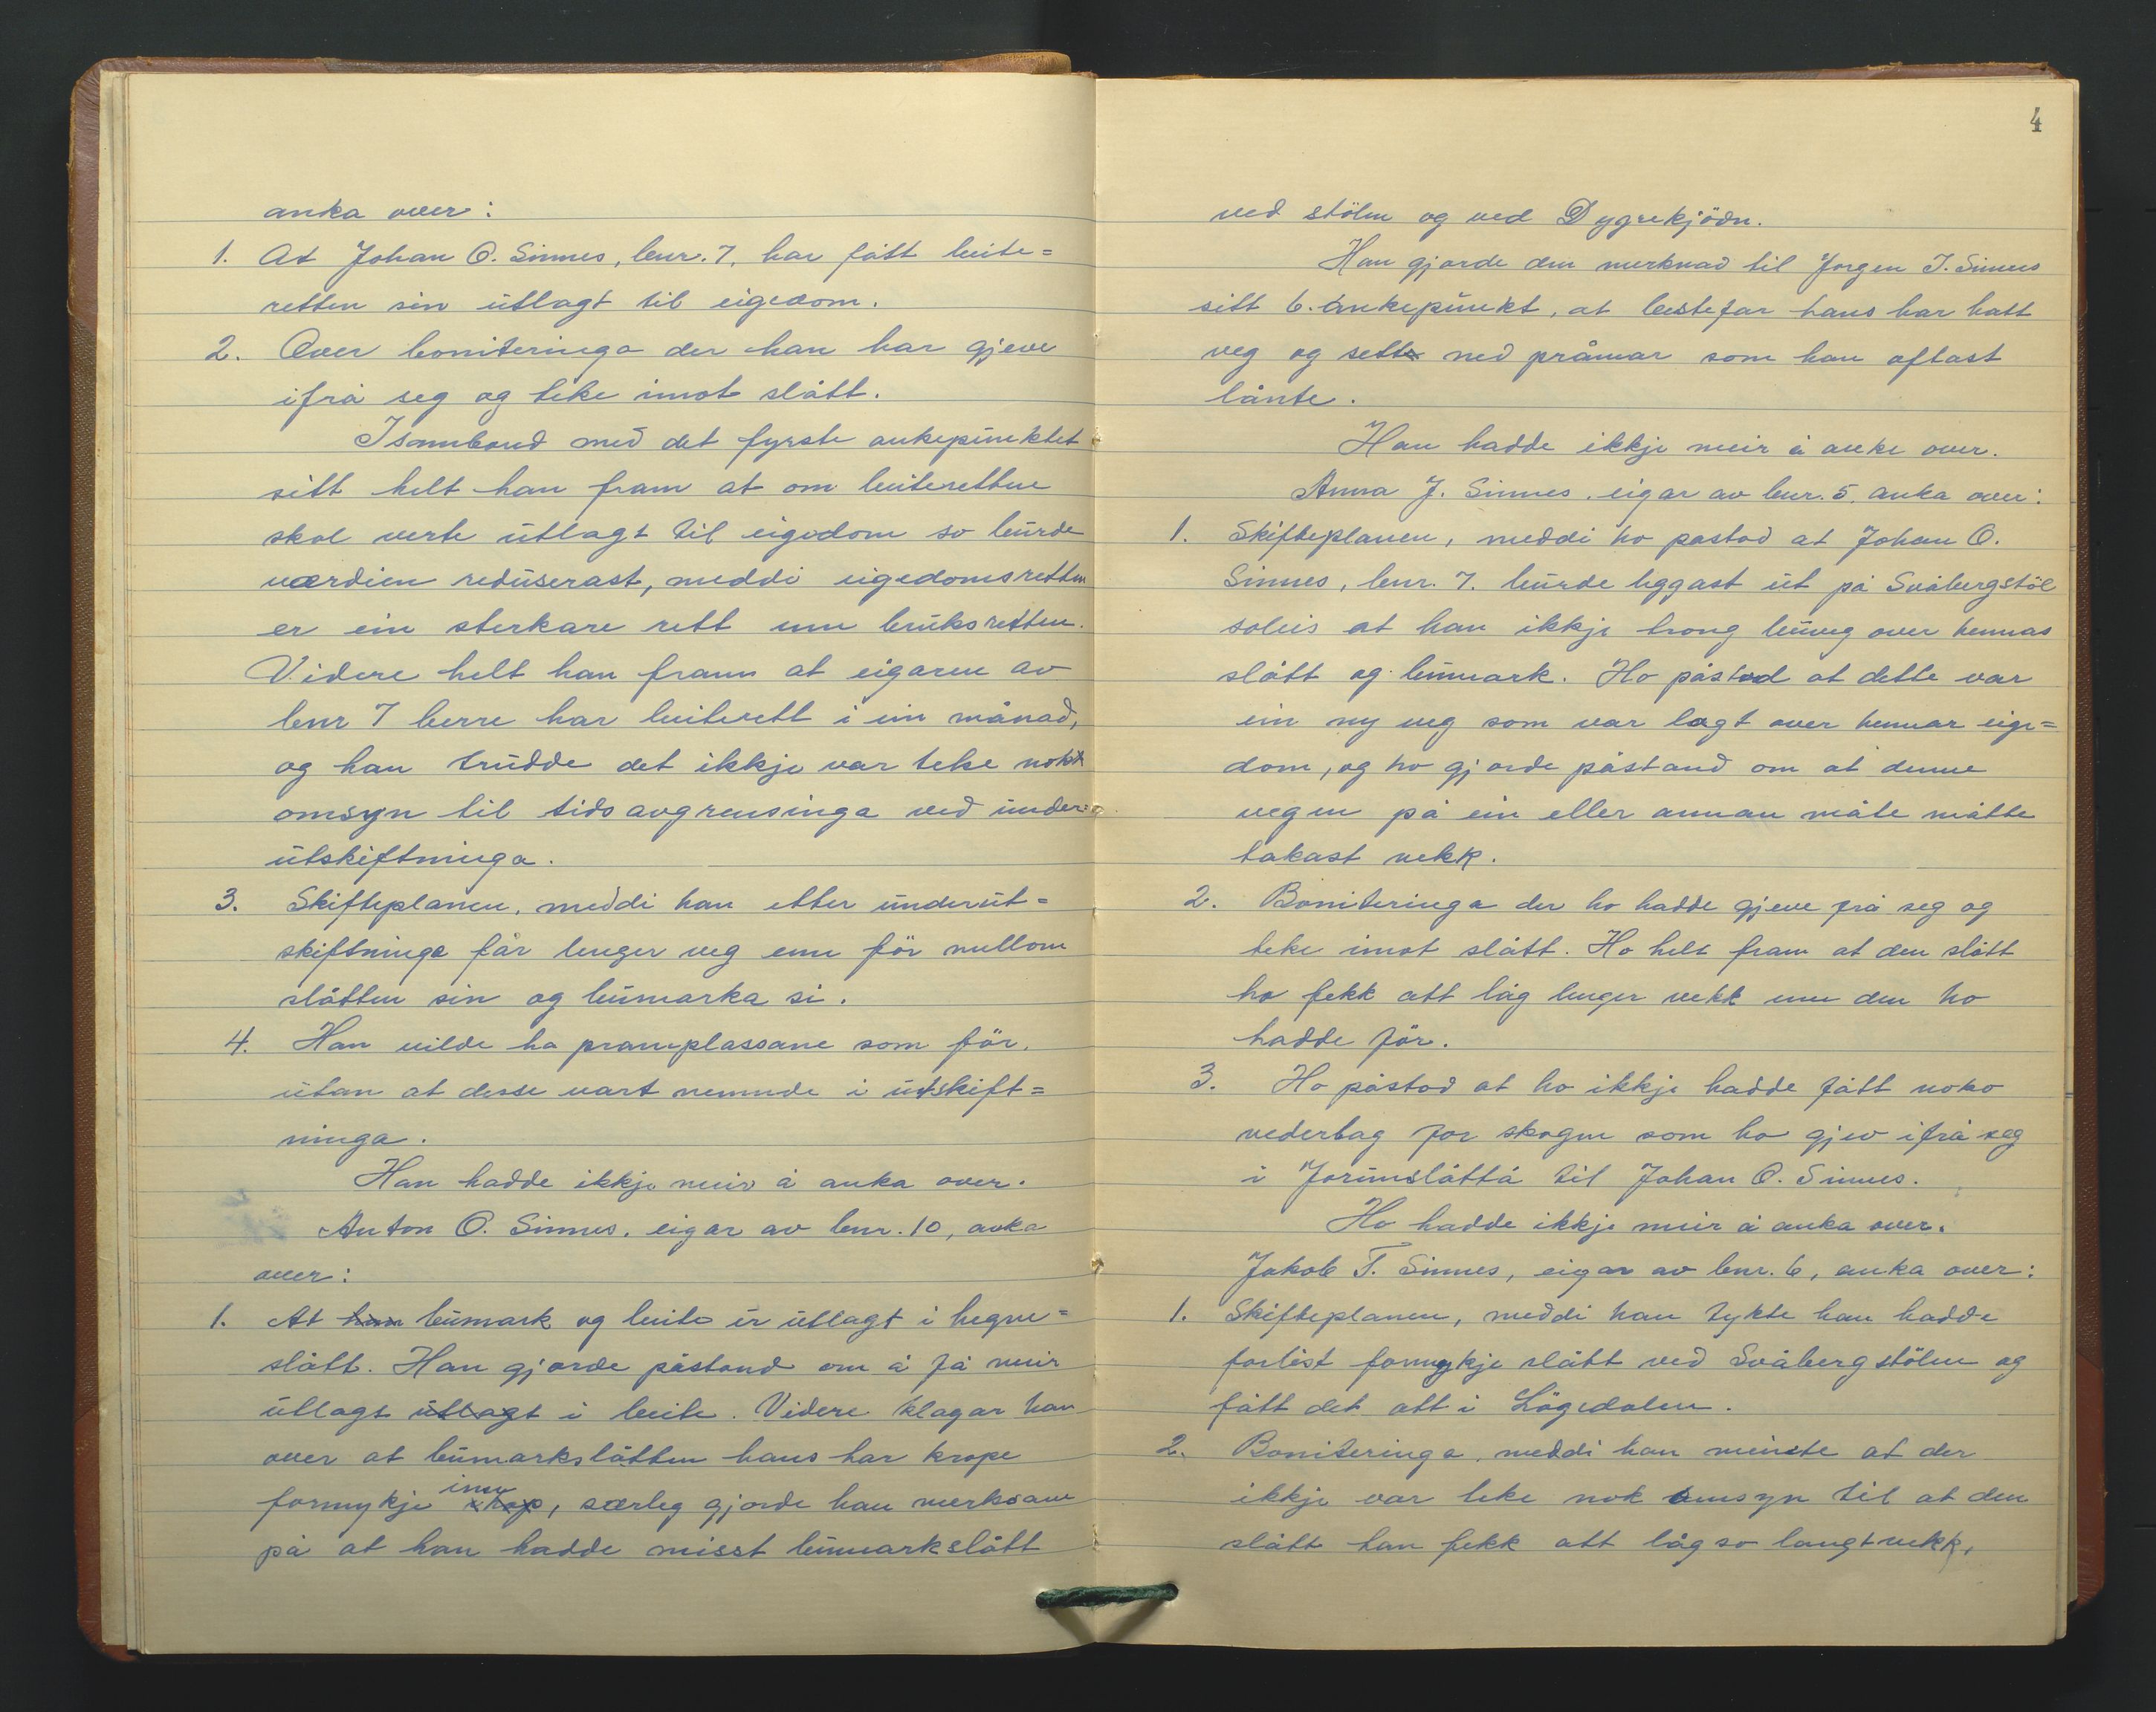 anka over:
1. At Johan O. Sinnes, bnr. 7, har fått beite=
retten sin utlagt til eigedom.
2. Over boniteringa der han har gjeve
ifrå seg og teke imot slått.
I samband med det fyrste ankepunktet
sitt helt han fram at om beiteretten
skal verte utlagt til eigedom so burde
værdien reduserast, meddi eigedomsretten
er ein sterkare rett enn bruksretten.
Videre helt han fram at eigaren av
bnr 7 berre har beiterett i ein månad,
og han trudde det ikkje var teke nok
omsyn til tidsavgrensinga ved under=
utskiftninga.
3. Skifteplanen, meddi han etter underut=
skiftninga får lenger veg enn för millom
slåtten sin og bumarka si.
4. Han vilde ha pramplassane som för,
utan at desse vart nemnde i utskift=
ninga.
Han hadde ikkje meir å anka over.
Anton O. Sinnes, eigar av bnr. 10, anka
over:
1. At bumark og beite er utlagt i hegne=
slått. Han gjorde påstand om å få meir
utlagt utlagt i beite. Videre klagar han
over at bumarkslåtten hans har krope
formykje inn, særleg gjorde han merksam
på at han hadde misst bumarkslått
4
ved stölen og ved Dygrekjödn.
Han gjorde den merknad til Jorgen J. Sinnes
sitt 6. ankepunkt, at bestefar hans har hatt
veg og sett ned pråmar som han oftast
lånte.
Han hadde ikkje meir å anke over.
Anna J. Sinnes, eigar av bnr. 5, anka over:
1. Skifteplanen, meddi ho påstod at Johan O.
Sinnes, bnr. 7. burde leggast ut på Svåbergstöl
soleis at han ikkje trong buveg over hennas
slått og bumark. Ho påstod at dette var
ein ny veg som var lagt over hennar eige=
dom, og ho gjorde påstand om at denne
vegen på ein eller annan måte måtte
takast vekk.
2. Boniteringa der ho hadde gjeve frå seg og
teke imot slått. Ho helt fram at den slått
ho fekk att låg lenger vekk enn den ho
hadde för.
3. Ho påstod at ho ikkje hadde fått noko
vederlag for skogen som ho gjev ifrå seg
i Jorunslåttå til Johan O. Sinnes.
Ho hadde ikkje meir å anka over.
Jakob T. Sinnes, eigar av bnr. 6, anka over:
1. Skifteplanen, meddi han tykte han hadde
forlist formykje slått ved Svåbergstölen og
fått det att i Lögedalen.
2. Boniteringa, meddi han meinte at der
ikkje var teke nok omsyn til at den
slått han fekk att låg so langt vekk,